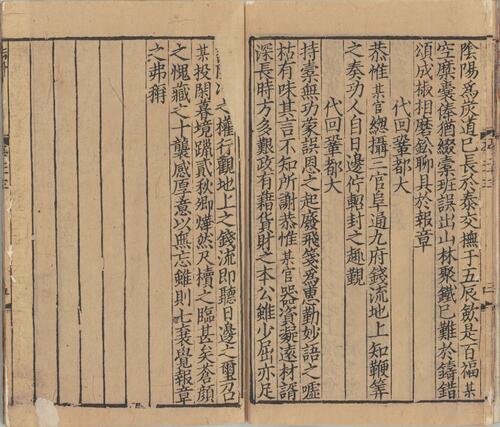 陰陽爲炭道已長於泰交撫于五辰斂是百福某
空縻橐俸猶綴槖班誤出山林聚鐵已難於鑄錯
頌成椒柏磨鉛聊具於報章
代回鞏都大
恭惟某官緫攝三官阜通九府錢流地上知鞭筭
之奏功人自日邊佇軺封之趣覲
代回鞏都大
持橐無功蒙誤恩之起廢飛箋爲惠勤妙語之噓
枯有味其言不知所謝恭惟某官器資藜遠材諝
深長時方多艱政有藉貨財之本公雖少屈亦足
之權行觀地上之錢流即聽日邊之璽召
某投閑暮境躐貳秋卿燁然尺櫝之臨甚矣蒼顔
之愧藏之十襲感厚意以無忘雖則七襄覺報章
之弗稱